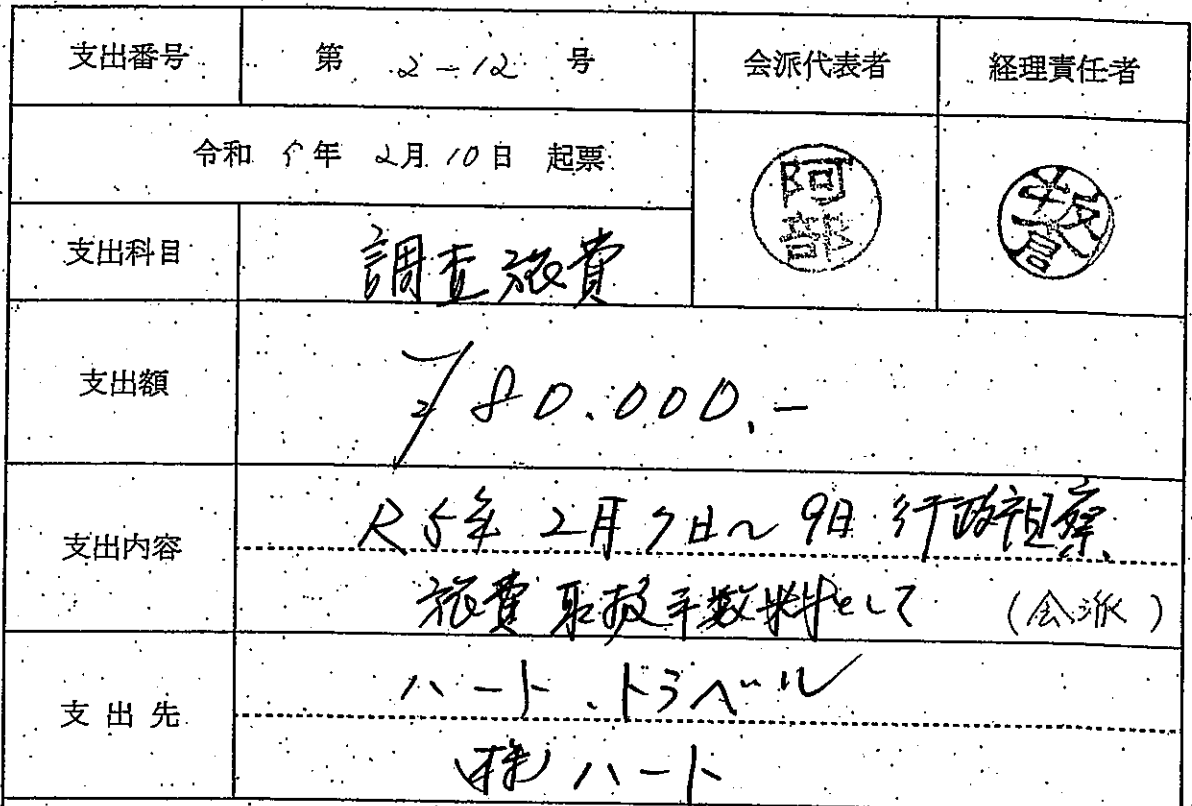 支出番号 第 2-12 号 会派代表者 経理責任者
令和 5年 2月 10日 起票
阿部
坂倉
支出科目 調査旅費
支出額 ¥80.000.-
支出内容 R5年 2月7日~9日 行政視察
旅費 取扱手数料として (会派)
支出先 ハート.トラベル
(株)ハート